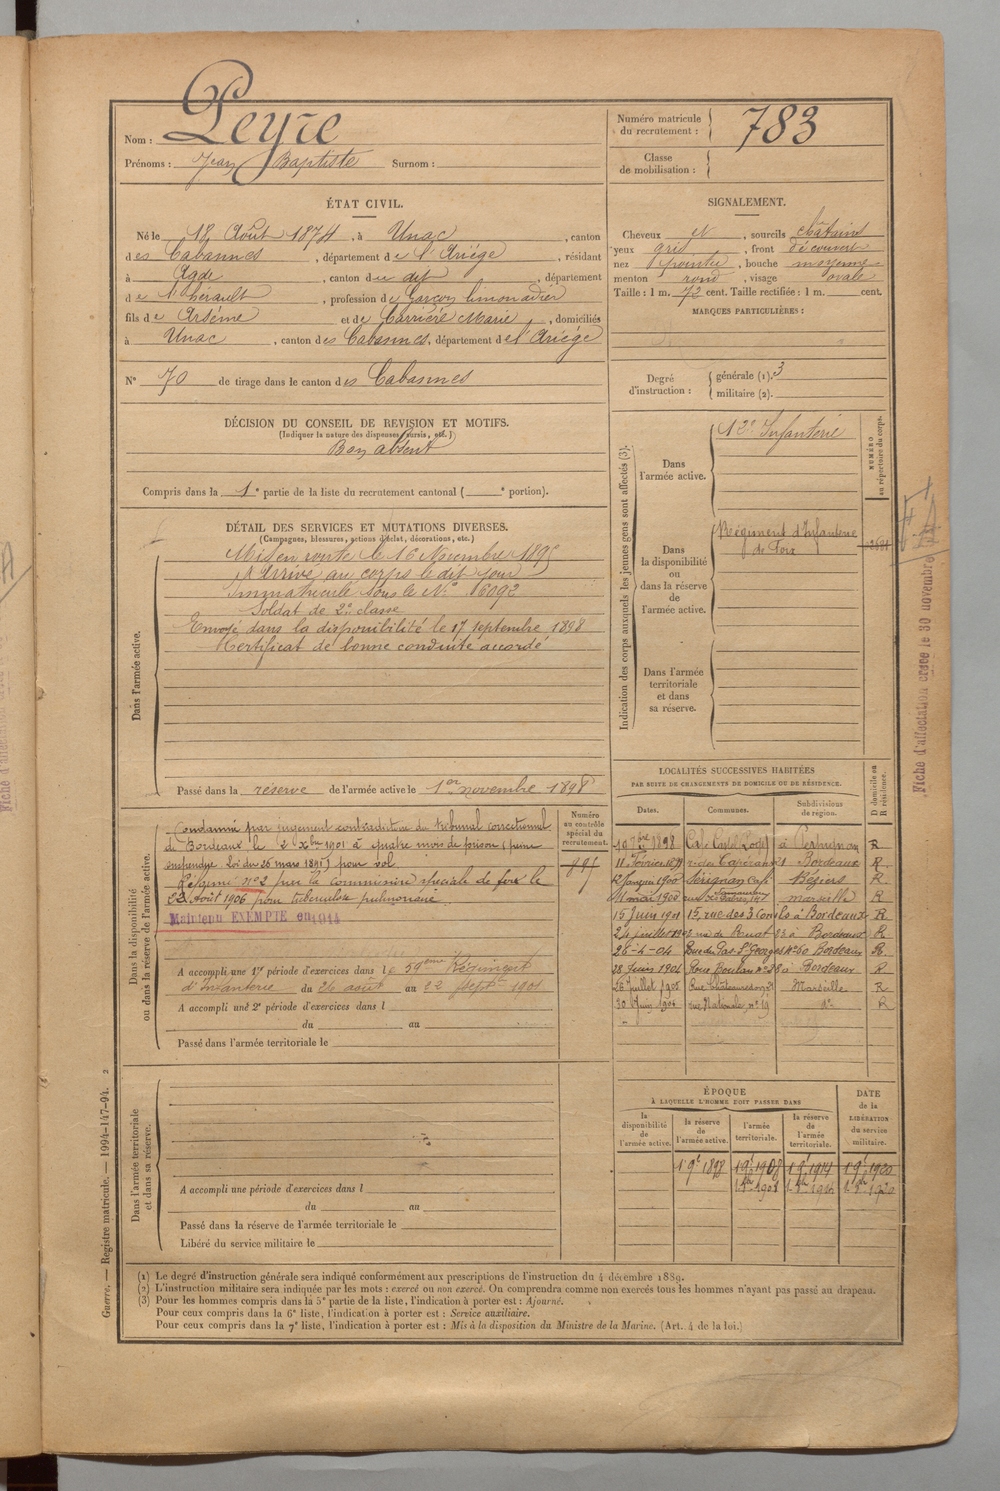 Nom : Peyre
Prénoms : Jean Baptiste Surnom :
Numéro matricule du recrutement : 783
Classe de mobilisation :
ÉTAT CIVIL.
Né le 18 Août 1874, à Unac, canton
des Cabannes, département de l'Ariège, résidant
à Agde, canton du dit, département
de l'hérault, profession de Garçon limonadier
fils de Arsème et de Carrière Marie, domiciliés
à Unac, canton des Cabannes, département de l'Ariège
N° 70 de tirage dans le canton des Cabannes
SIGNALEMENT.
Cheveux et, sourcils châtains
yeux gris, front découvert
nez pointu, bouche moyenne
menton rond, visage ovale
Taille : 1 m. 72 cent. Taille rectifiée : 1 m. cent.
MARQUES PARTICULIÈRES :
Degré d'instruction : générale (1). 3
militaire (2).
DÉCISION DU CONSEIL DE REVISION ET MOTIFS.
(Indiquer la nature des dispenses, sursis, etc.)
Bon absent
Compris dans la 1e partie de la liste du recrutement cantonal ( e portion).
DÉTAIL DES SERVICES ET MUTATIONS DIVERSES.
(Campagnes, blessures, actions d'éclat, décorations, etc.)
Dans l'armée active.
Mis en route le 16 Novembre 1895
Arrivé au corps le dit jour
Immatriculé sous le N° 16092
Soldat de 2e classe
Envoyé dans la disponibilité le 17 septembre 1898
Certificat de bonne conduite accordé
Passé dans la réserve de l'armée active le 1er novembre 1898
Indication des corps auxquels les jeunes gens sont affectés (3).
NUMÉRO au répertoire du corps.
Dans l'armée active.
12e Infanterie
Dans la disponibilité ou dans la réserve de l'armée active.
Régiment d'Infanterie
de Foix
Dans l'armée territoriale et dans sa réserve.
Fiche d'affectation créée le 30 novembre
Dans la disponibilité ou dans la réserve de l'armée active.
Numéro au contrôle spécial du recrutement.
Condamné par jugement contradictoire du tribunal correctionnel
de Bordeaux le 2 Xbre 1901 à quatre mois de prison (peine
suspendue loi du 26 mars 1891) pour vol.
Réformé n°2 par la commission spéciale de foix le
Août 1906 pour tuberculose pulmonaire
Maintenu EXEMPTÉ en 1914
A accompli une 1re période d'exercices dans le 59eme Régiment
d'Infanterie du 26 août au 22 Septbre 1901
A accompli une 2e période d'exercices dans l
du au
Passé dans l'armée territoriale le
LOCALITÉS SUCCESSIVES HABITÉES
PAR SUITE DE CHANGEMENTS DE DOMICILE OU DE RÉSIDENCE.
D domicile ou R résidence.
Dates. Communes. Subdivisions de région.
1898 à Perpignan R
11 Février 1899 Bordeaux R
12 Janvier 1900 Sérignan Café Béziers R
11 mai 1900 Marseille R
15 Juin 1901 15, rue des 3 Conils à Bordeaux R
24 Juillet 190 à Bordeaux R
26-4-04 Rue du Pas St Georges N°60 Bordeaux R.
28 Juin 1904 à Bordeaux R
26 Juillet 1905 Marseille R
30 Juin 1906 rue Nationale, n° 19 do R
Dans l'armée territoriale et dans sa réserve.
A accompli une période d'exercices dans l
du au
Passé dans la réserve de l'armée territoriale le
Libéré du service militaire le
ÉPOQUE
À LAQUELLE L'HOMME DOIT PASSER DANS
la disponibilité de l'armée active. la réserve de l'armée active. l'armée territoriale. la réserve de l'armée territoriale.
DATE de la LIBÉRATION du service militaire.
1 9e 1898 1 9e 1908 1 9e 1914 1 9e 1920
(1) Le degré d'instruction générale sera indiqué conformément aux prescriptions de l'instruction du 4 décembre 1889.
(2) L'instruction militaire sera indiquée par les mots : exercé ou non exercé. On comprendra comme non exercés tous les hommes n'ayant pas passé au drapeau.
(3) Pour les hommes compris dans la 5e partie de la liste, l'indication à porter est : Ajourné.
Pour ceux compris dans la 6e liste, l'indication à porter est : Service auxiliaire.
Pour ceux compris dans la 7e liste, l'indication à porter est : Mis à la disposition du Ministre de la Marine. (Art. 4 de la loi.)
Guerre. — Registre matricule. — 1994-147-94. 2